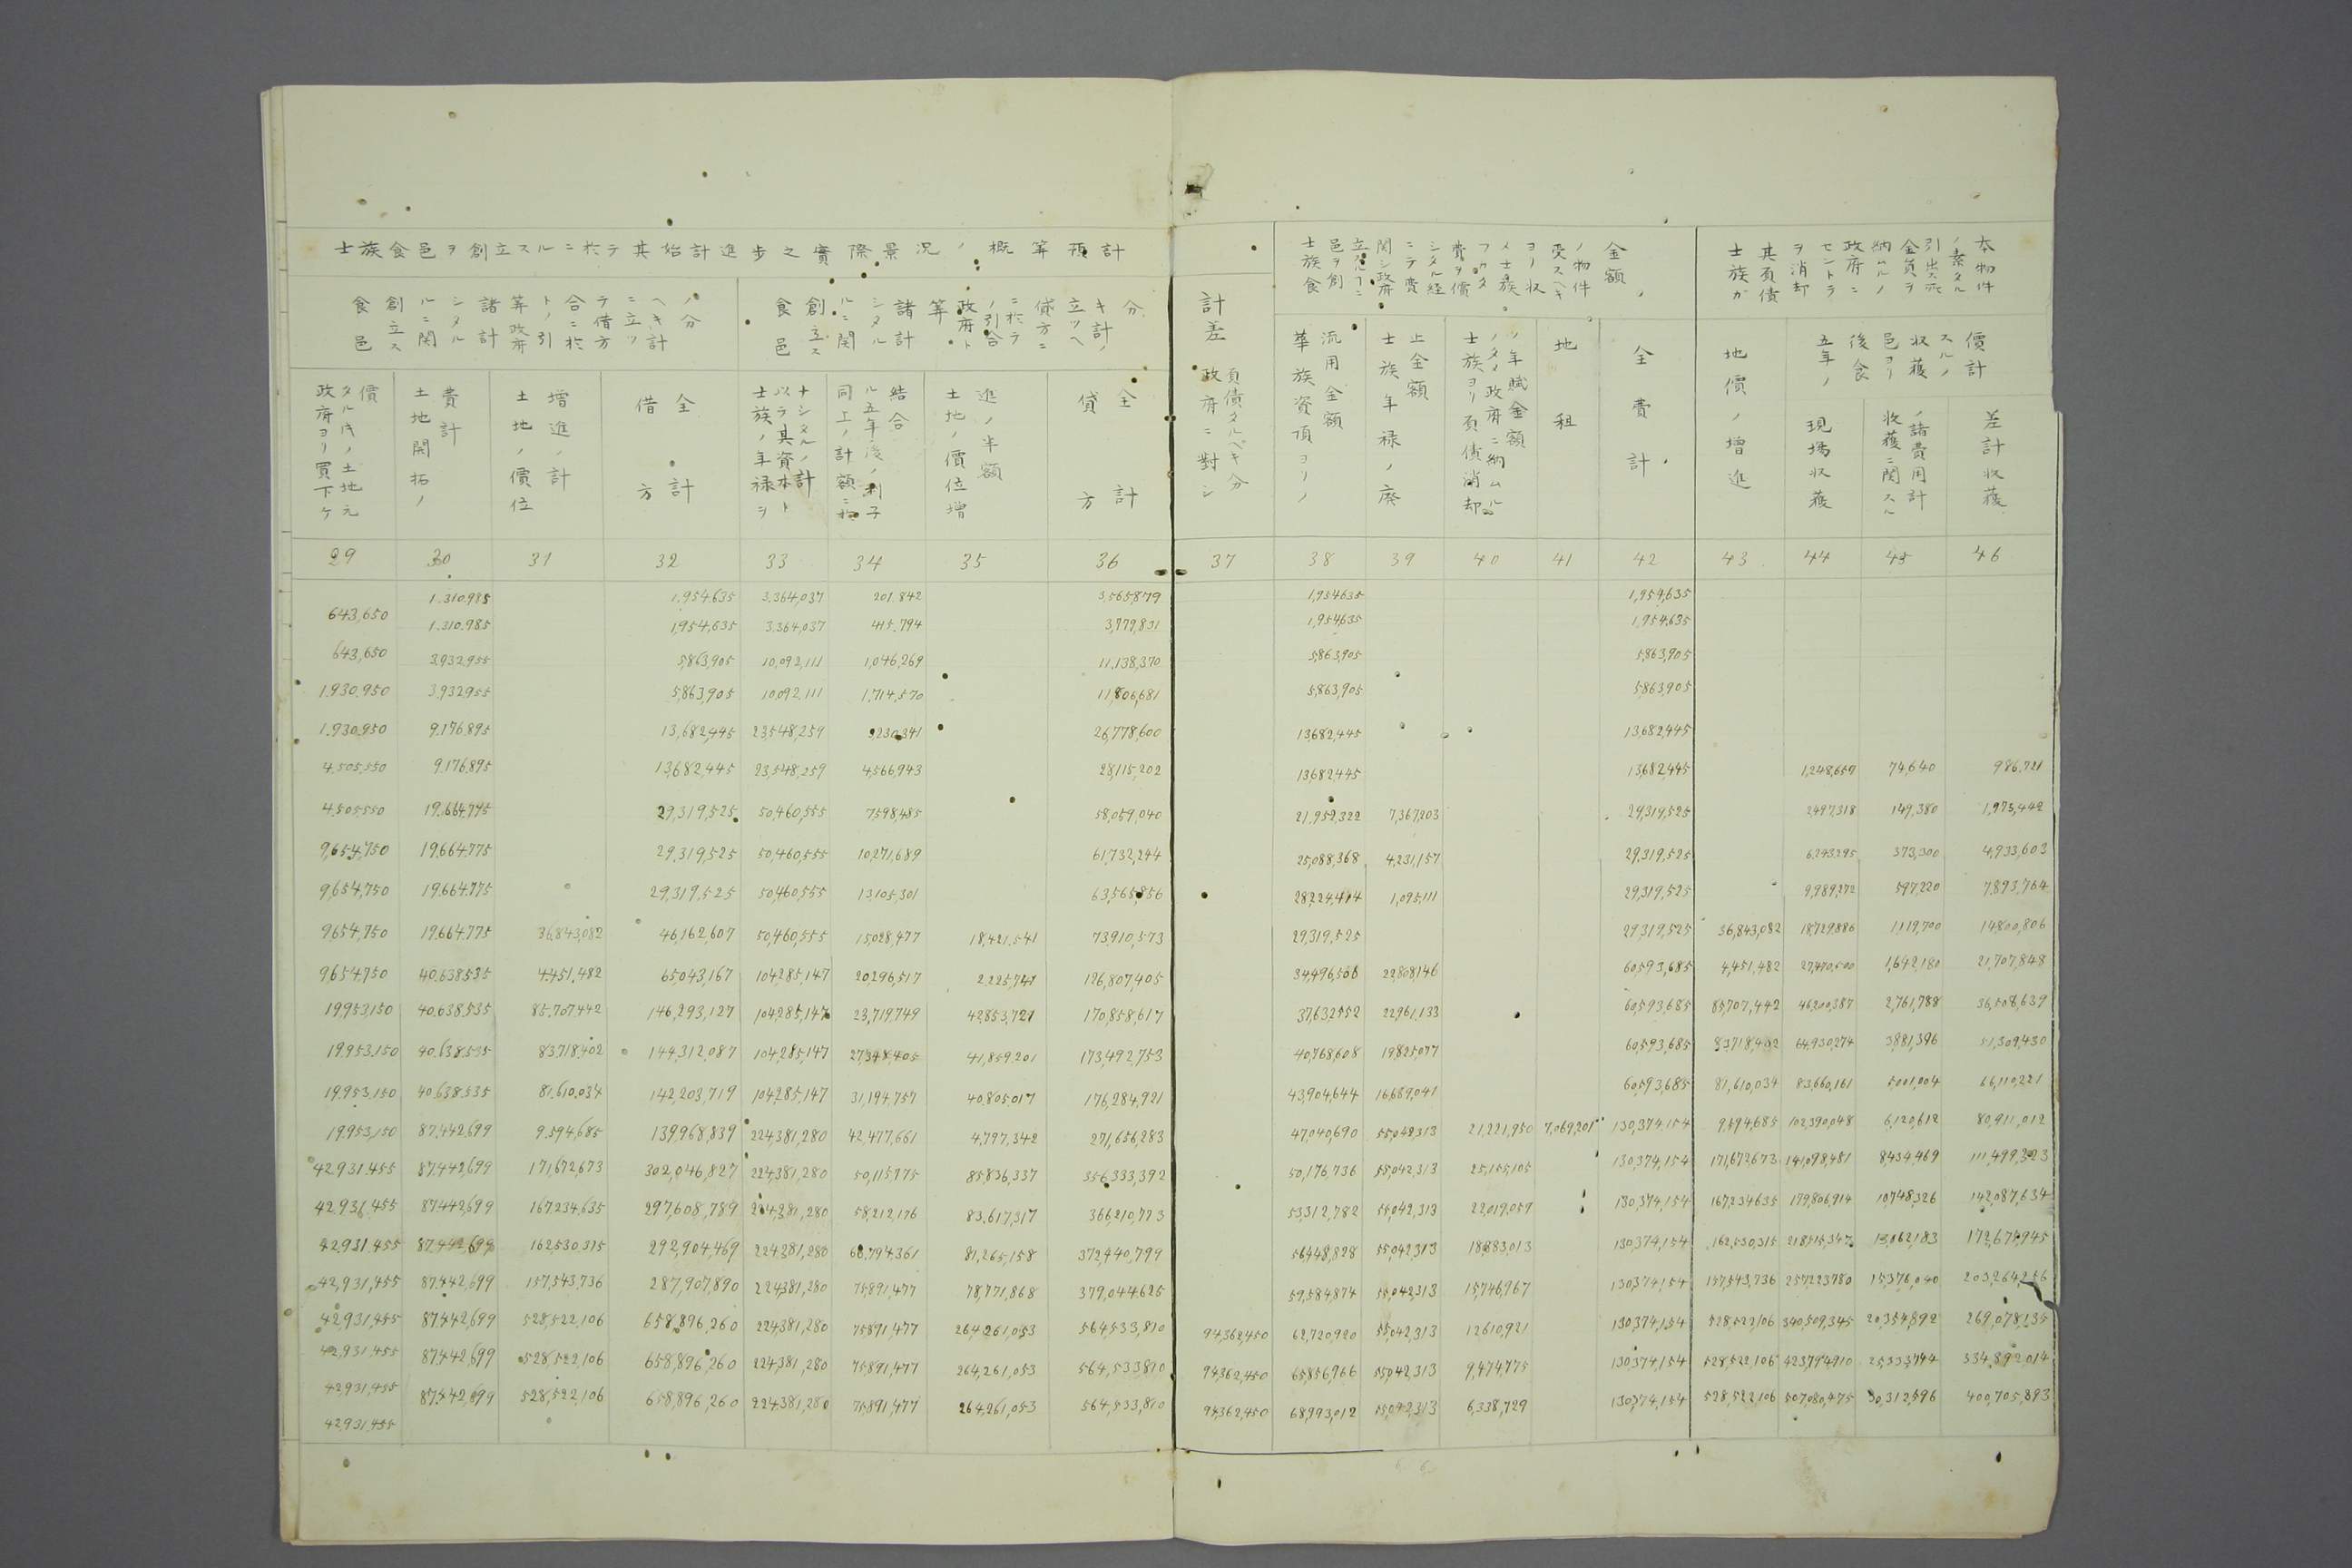 士族食邑ヲ創立スルニ於テ其始計進步之實際景況ノ概算預計
食邑創立スルニ関シタル諸計算政府トノ引合ニ於テ借方ニ立ツヘキ計ノ分
食邑創立スルニ関シタル諸計算政府トノ引合ニ於テ貸方ニ立ツヘキ計ノ分
計差
士族食邑ヲ創立スルヿニ関シ政府ニテ費シタル経費ヲ償フカタメ士族ヨリ収受スヘキノ物件ノ金額
士族ガ其負債ヲ消却セントラ政府ニ納ムルノ金員ヲ引出ス所ノ素タル本物件
政府ヨリ買下ケタル氏ノ土地元價
土地開拓ノ費計
土地ノ價位増進ノ計
借方全計
士族ノ年禄ヲ以テ其資本トナシタルノ計
同上ノ計額ニ結合ル五年後ノ利子
土地ノ價位増進ノ半額
貸方全計
政府ニ對シ負債タルベキ分
華族資項ヨリノ流用金額
士族年禄ノ廃止金額
士族ヨリ負債消却ノタメ政府ニ納ムルノ年賦金額
地租
全費計
地價ノ増進
五年ノ後食邑ヨリ収獲スルノ價計
現場収獲
収獲ニ関スルノ諸費用計
差計収獲
29 30 31 32 33 34 35 36 37 38 39 40 41 42 43 44 45 46
643,650 1.310.985 1,954,635 3,364,037 201.842 3,565,879 1,954,635 1,954,635
643,650 1.310.985 1,954,635 3,364,037 415,794 3,779,831 1,954,635 1,954,635
1.930.950 3,932,955 5,863,905 10,092,111 1,046,269 11,138,370 5,863,905 5,863,905
1.930.950 3,932,955 5,863,905 10,092,111 1,714,570 11,806,681 5,863,905 5,863,905
4,505,550 9,176,895 13,682,445 23,548,259 3,230,341 26,778,600 13,682,445 13,682,445
4,505,550 9,176,895 13,682,445 23,548,259 4,566,943 28,115,202 13,682,445 13,682,445 1,248,659 74,640 986,721
9,654,750 19,664,775 29,319,525 50,460,555 7,598,485 58,059,040 21,952,322 7,367,203 29,319,525 2,497,318 149,380 1,973,442
9,654,750 19,664,775 29,319,525 50,460,555 10,271,689 61,732,244 25,088,368 4,231,157 29,319,525 6,243,295 373,300 4,933,603
9,654,750 19,664,775 29,319,525 50,460,555 13,105,301 63,565,856 28,224,414 1,095,111 29,319,525 9,989,272 597,220 7,893,764
9,654,750 19,664,775 36,843,082 46,162,607 50,460,555 15,028,477 18,421,541 73,910,573 29,319,525 29,319,525 36,843,082 18,729,886 1,119,700 14,800,806
19,953,150 40,638,535 4,451,482 65,043,167 104,285,147 20,296,517 2,225,741 126,807,405 34,496,506 22,808,146 60,593,685 4,451,482 27,470,500 1,642,180 21,707,848
19,953,150 40,638,535 85,707,442 146,293,127 104,285,147 23,719,749 42,853,721 170,858,617 37,632,552 22,961,133 60,593,685 85,707,442 46,200,387 2,761,788 36,508,639
19,953,150 40,638,535 83,718,402 144,312,087 104,285,147 27,348,405 41,859,201 173,492,753 40,768,608 19,825,077 60,593,685 83,718,402 64,930,274 3,881,396 51,309,430
19,953,150 40,638,535 81,610,034 142,203,719 104,285,147 31,194,757 40,805,017 176,284,921 43,904,644 16,689,041 60,593,685 81,610,034 83,660,161 5,001,004 66,110,221
42,931,455 87,442,699 9,594,685 139,968,839 224,381,280 42,477,661 4,797,342 271,656,283 47,040,690 55,042,313 21,221,950 7,069,201 130,374,154 9,594,685 102,390,048 6,120,612 80,911,012
42,931,455 87,442,699 171,672,673 302,046,827 224,381,280 50,115,775 85,836,337 356,333,392 50,176,736 55,042,313 25,155,105 130,374,154 171,672,673 141,098,481 8,434,469 111,499,323
42,931,455 87,442,699 167,234,635 297,608,789 224,381,280 58,212,176 83,617,317 366,210,773 53,312,782 55,042,313 22,019,059 130,374,154 167,234,635 179,806,914 10,748,326 142,087,634
42,931,455 87,442,699 162,530,315 292,904,469 224,381,280 66,794,361 81,265,158 372,440,799 56,448,828 55,042,313 18,883,013 130,374,154 162,530,315 218,515,347 13,062,183 172,675,945
42,931,455 87,442,699 157,543,736 287,907,890 224,381,280 75,891,477 78,771,868 379,044,625 59,584,874 55,042,313 15,746,967 130,374,154 157,543,736 257,223,780 15,376,040 203,264,256
42,931,455 87,442,699 528,522,106 658,896,260 224,381,280 75,891,477 264,261,053 564,533,810 94,362,450 62,720,920 55,042,313 12,610,921 130,374,154 528,522,106 340,509,345 20,354,892 269,078,135
42,931,455 87,442,699 528,522,106 658,896,260 224,381,280 75,891,477 264,261,053 564,533,810 94,362,450 65,856,966 55,042,313 9,474,775 130,374,154 528,522,106 423,794,910 25,333,744 334,892,014
42,931,455 87,442,699 528,522,106 658,896,260 224,381,280 75,891,477 264,261,053 564,533,810 94,362,450 68,993,012 55,042,313 6,338,729 130,374,154 528,522,106 507,080,475 30,312,596 400,705,893